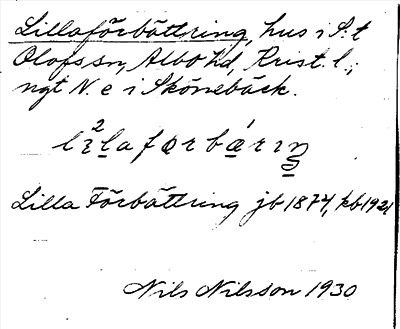 Lillaförbättring, hus i S:t
Olofs sn, Albo hd, Krist. l.;
ngt N e i Skönebäck.
Lilla Förbättring jb 1874, kb 1921
Nils Nilsson 1930